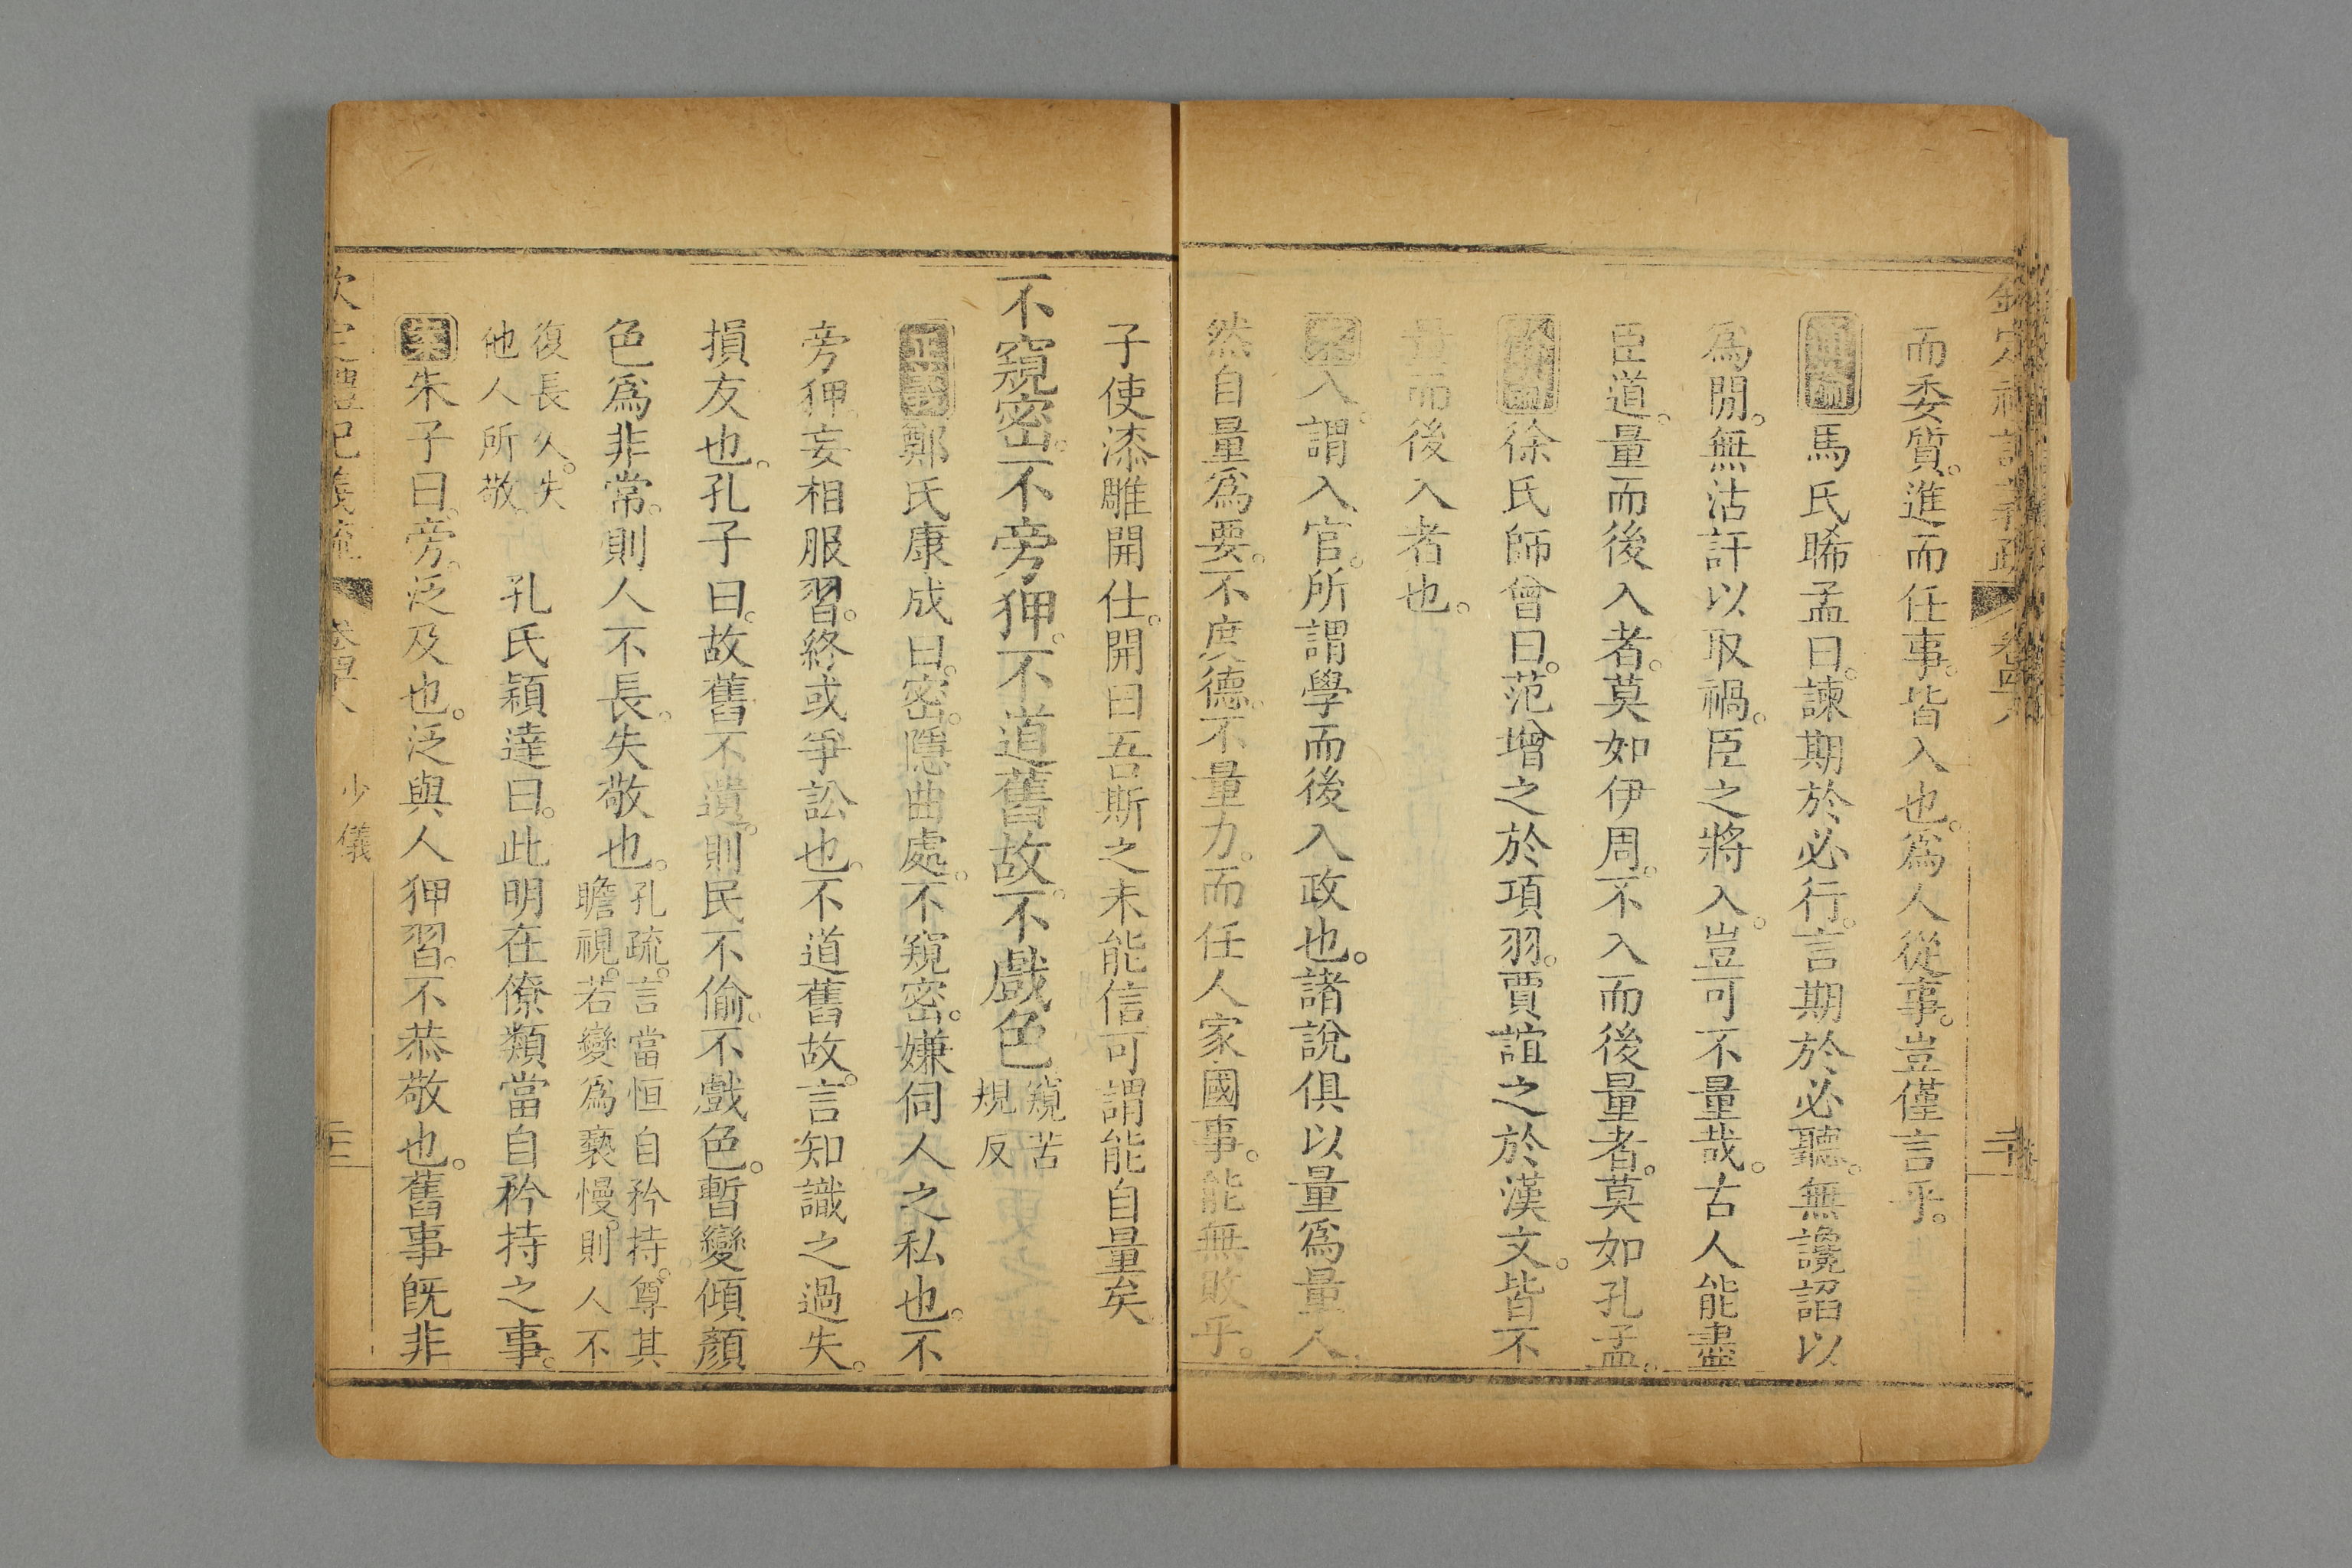 欽定禮記義疏 卷四十八
而委質。進而任事。皆入也。爲人從事。豈僅言乎。
通論 馬氏晞孟曰。諫期於必行。言期於必聽。無讒諂以
爲閒。無沽訐以取禍。臣之將入。豈可不量哉。古人能盡
臣道。量而後入者。莫如伊周。不入而後量者。莫如孔孟。
餘論 徐氏師曾曰。范增之於項羽。賈誼之於漢文。皆不
量而後入者也。
案 入。謂入官。所謂學而後入政也。諸說俱以量爲量人。
然自量爲要。不度德。不量力。而任人家國事。能無敗乎。
子使漆雕開仕。開曰吾斯之未能信可謂能自量矣
不窺密。不旁狎。不道舊故。不戲色 窺苦
規反
正義 鄭氏康成曰。密。隱曲處。不窺密。嫌伺人之私也。不
旁狎。妄相服習。終或爭訟也。不道舊故。言知識之過失。
損友也。孔子曰。故舊不遺。則民不偷。不戲色。暫變傾顏
色爲非常。則人不長。失敬也。孔疏。言當恒自矜持。尊其
瞻視。若變爲褻慢。則人不
復長久。失
他人所敬。 孔氏穎達曰。此明在僚類當自矜持之事。
案 朱子曰。旁。泛及也。泛與人狎習。不恭敬也。舊事旣非
欽定禮記義疏 卷四十八 少儀